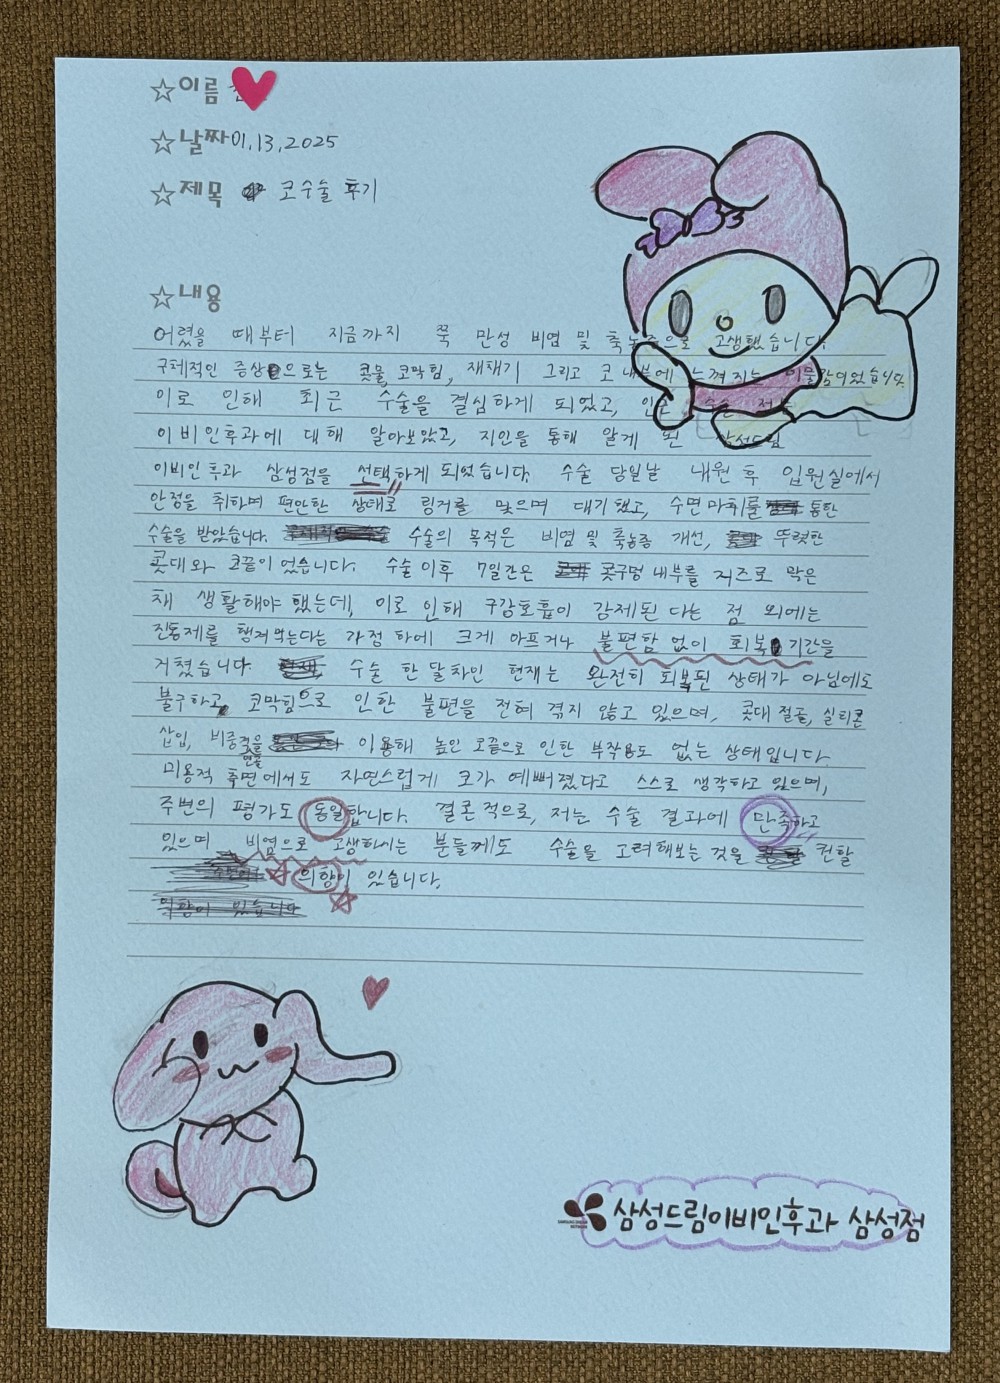 ☆이름
☆날짜 01.13.2025
☆제목 코수술 후기
☆내용
어렸을 때부터 지금까지 쭉 만성 비염 및 축농증으로 고생했습니다.
구체적인 증상으로는 콧물, 코막힘, 재채기 그리고 코 내부에 느껴지는 이물감이었습니다.
이로 인해 최근 수술을 결심하게 되었고, 수술 전
이비인후과에 대해 알아보았고, 지인을 통해 알게 된 삼성드림
이비인후과 삼성점을 선택하게 되었습니다. 수술 당일날 내원 후 입원실에서
안정을 취하며 편안한 상태로 링거를 맞으며 대기했고, 수면마취를 통한
수술을 받았습니다. 수술의 목적은 비염 및 축농증 개선, 뚜렷한
콧대와 코끝이었습니다. 수술 이후 7일간은 콧구멍 내부를 거즈로 막은
채 생활해야 했는데, 이로 인해 구강호흡이 강제된다는 점 외에는
진통제를 챙겨먹는다는 가정 하에 크게 아프거나 불편함 없이 회복 기간을
거쳤습니다. 수술 한 달차인 현재는 완전히 회복된 상태가 아님에도
불구하고, 코막힘으로 인한 불편을 전혀 겪지 않고 있으며, 콧대 절골, 실리콘
삽입, 비중격 연골을 이용해 높인 코끝으로 인한 부작용도 없는 상태입니다.
미용적 측면에서도 자연스럽게 코가 예뻐졌다고 스스로 생각하고 있으며,
주변의 평가도 동일합니다. 결론적으로, 저는 수술 결과에 만족하고
있으며 비염으로 고생하시는 분들께도 수술을 고려해보는 것을 권할
의향이 있습니다.
삼성드림이비인후과 삼성점